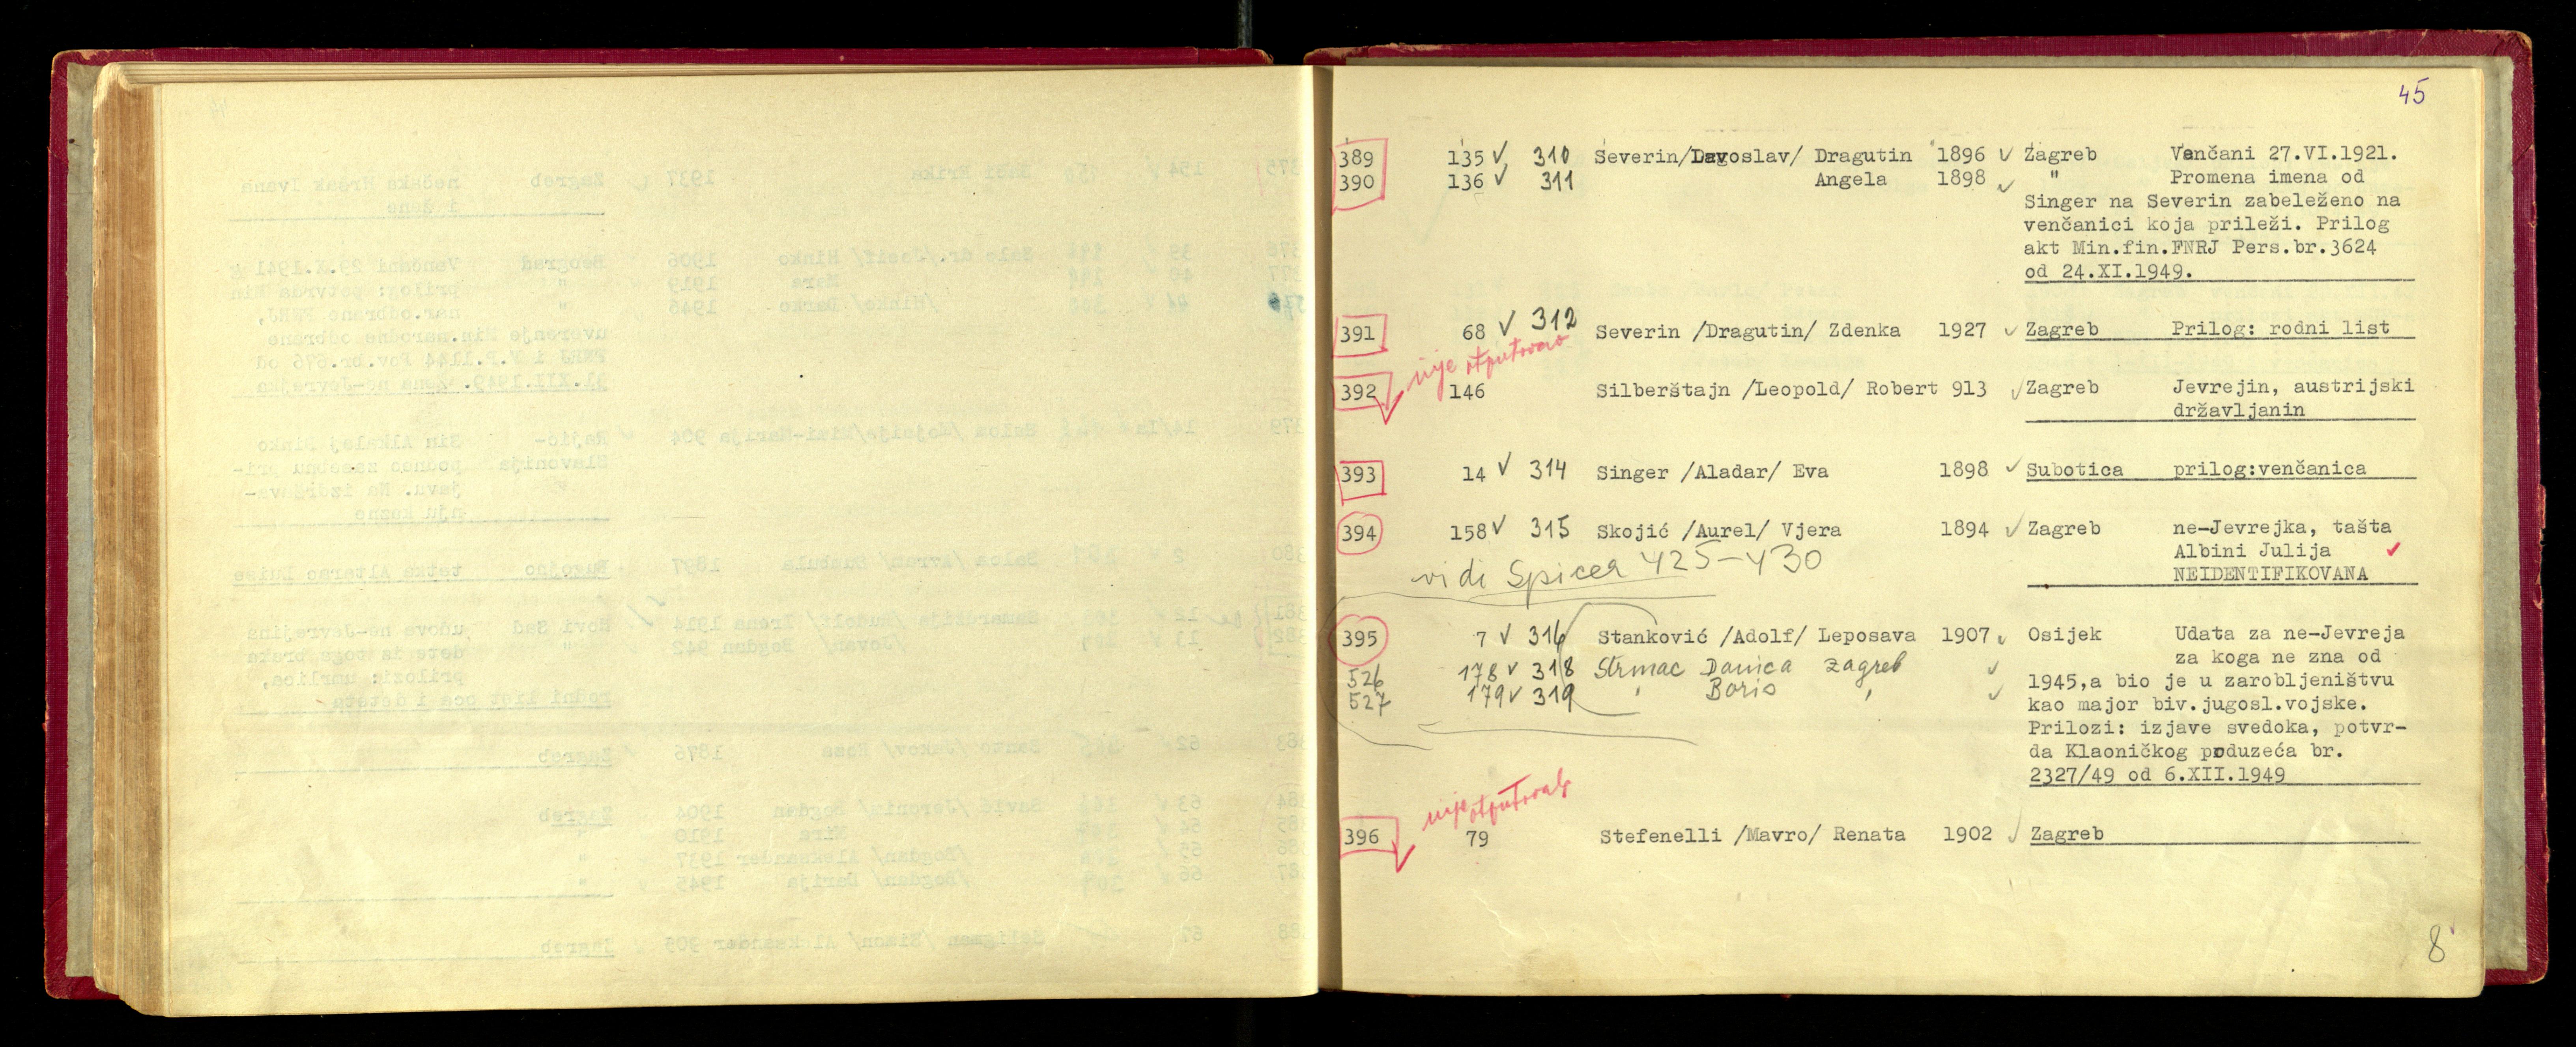 45
389 135 ✓ 310 Severin/Davoslav/ Dragutin 1896 ✓ Zagreb Venčani 27.VI.1921.
390 136 ✓ 311 Angela 1898 ✓ " Promena imena od
Singer na Severin zabeleženo na
venčanici koja prileži. Prilog
akt Min.fin.FNRJ Pers.br.3624
od 24.XI.1949.
391 68 ✓ 312 Severin /Dragutin/ Zdenka 1927 ✓ Zagreb Prilog: rodni list
nije otputovao
392 146 Silberštajn /Leopold/ Robert 913 ✓ Zagreb Jevrejin, austrijski
državljanin
393 14 ✓ 314 Singer /Aladar/ Eva 1898 ✓ Subotica prilog:venčanica
394 158 ✓ 315 Skojić /Aurel/ Vjera 1894 ✓ Zagreb ne-Jevrejka, tašta
Albini Julija ✓
NEIDENTIFIKOVANA
vidi Spicer 425-430
395 7 ✓ 316 Stanković /Adolf/ Leposava 1907 ✓ Osijek Udata za ne-Jevreja
za koga ne zna od
526 178 ✓ 318 Strmac Danica Zagreb ✓
1945,a bio je u zarobljeništvu
527 179 ✓ 319 " Boris " ✓
kao major biv.jugosl.vojske.
Prilozi: izjave svedoka, potvr-
da Klaoničkog poduzeća br.
2327/49 od 6.XII.1949
nije otputovala
396 79 Stefenelli /Mavro/ Renata 1902 ✓ Zagreb
8